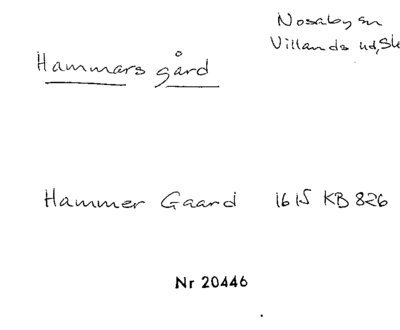 Nosaby sn
Villands hd, Sk
Hammars gård
Hammer Gaard 1615 KB 826
Nr 20446